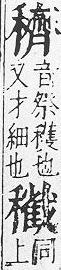 穧
音祭穫也
又才細也
同
上